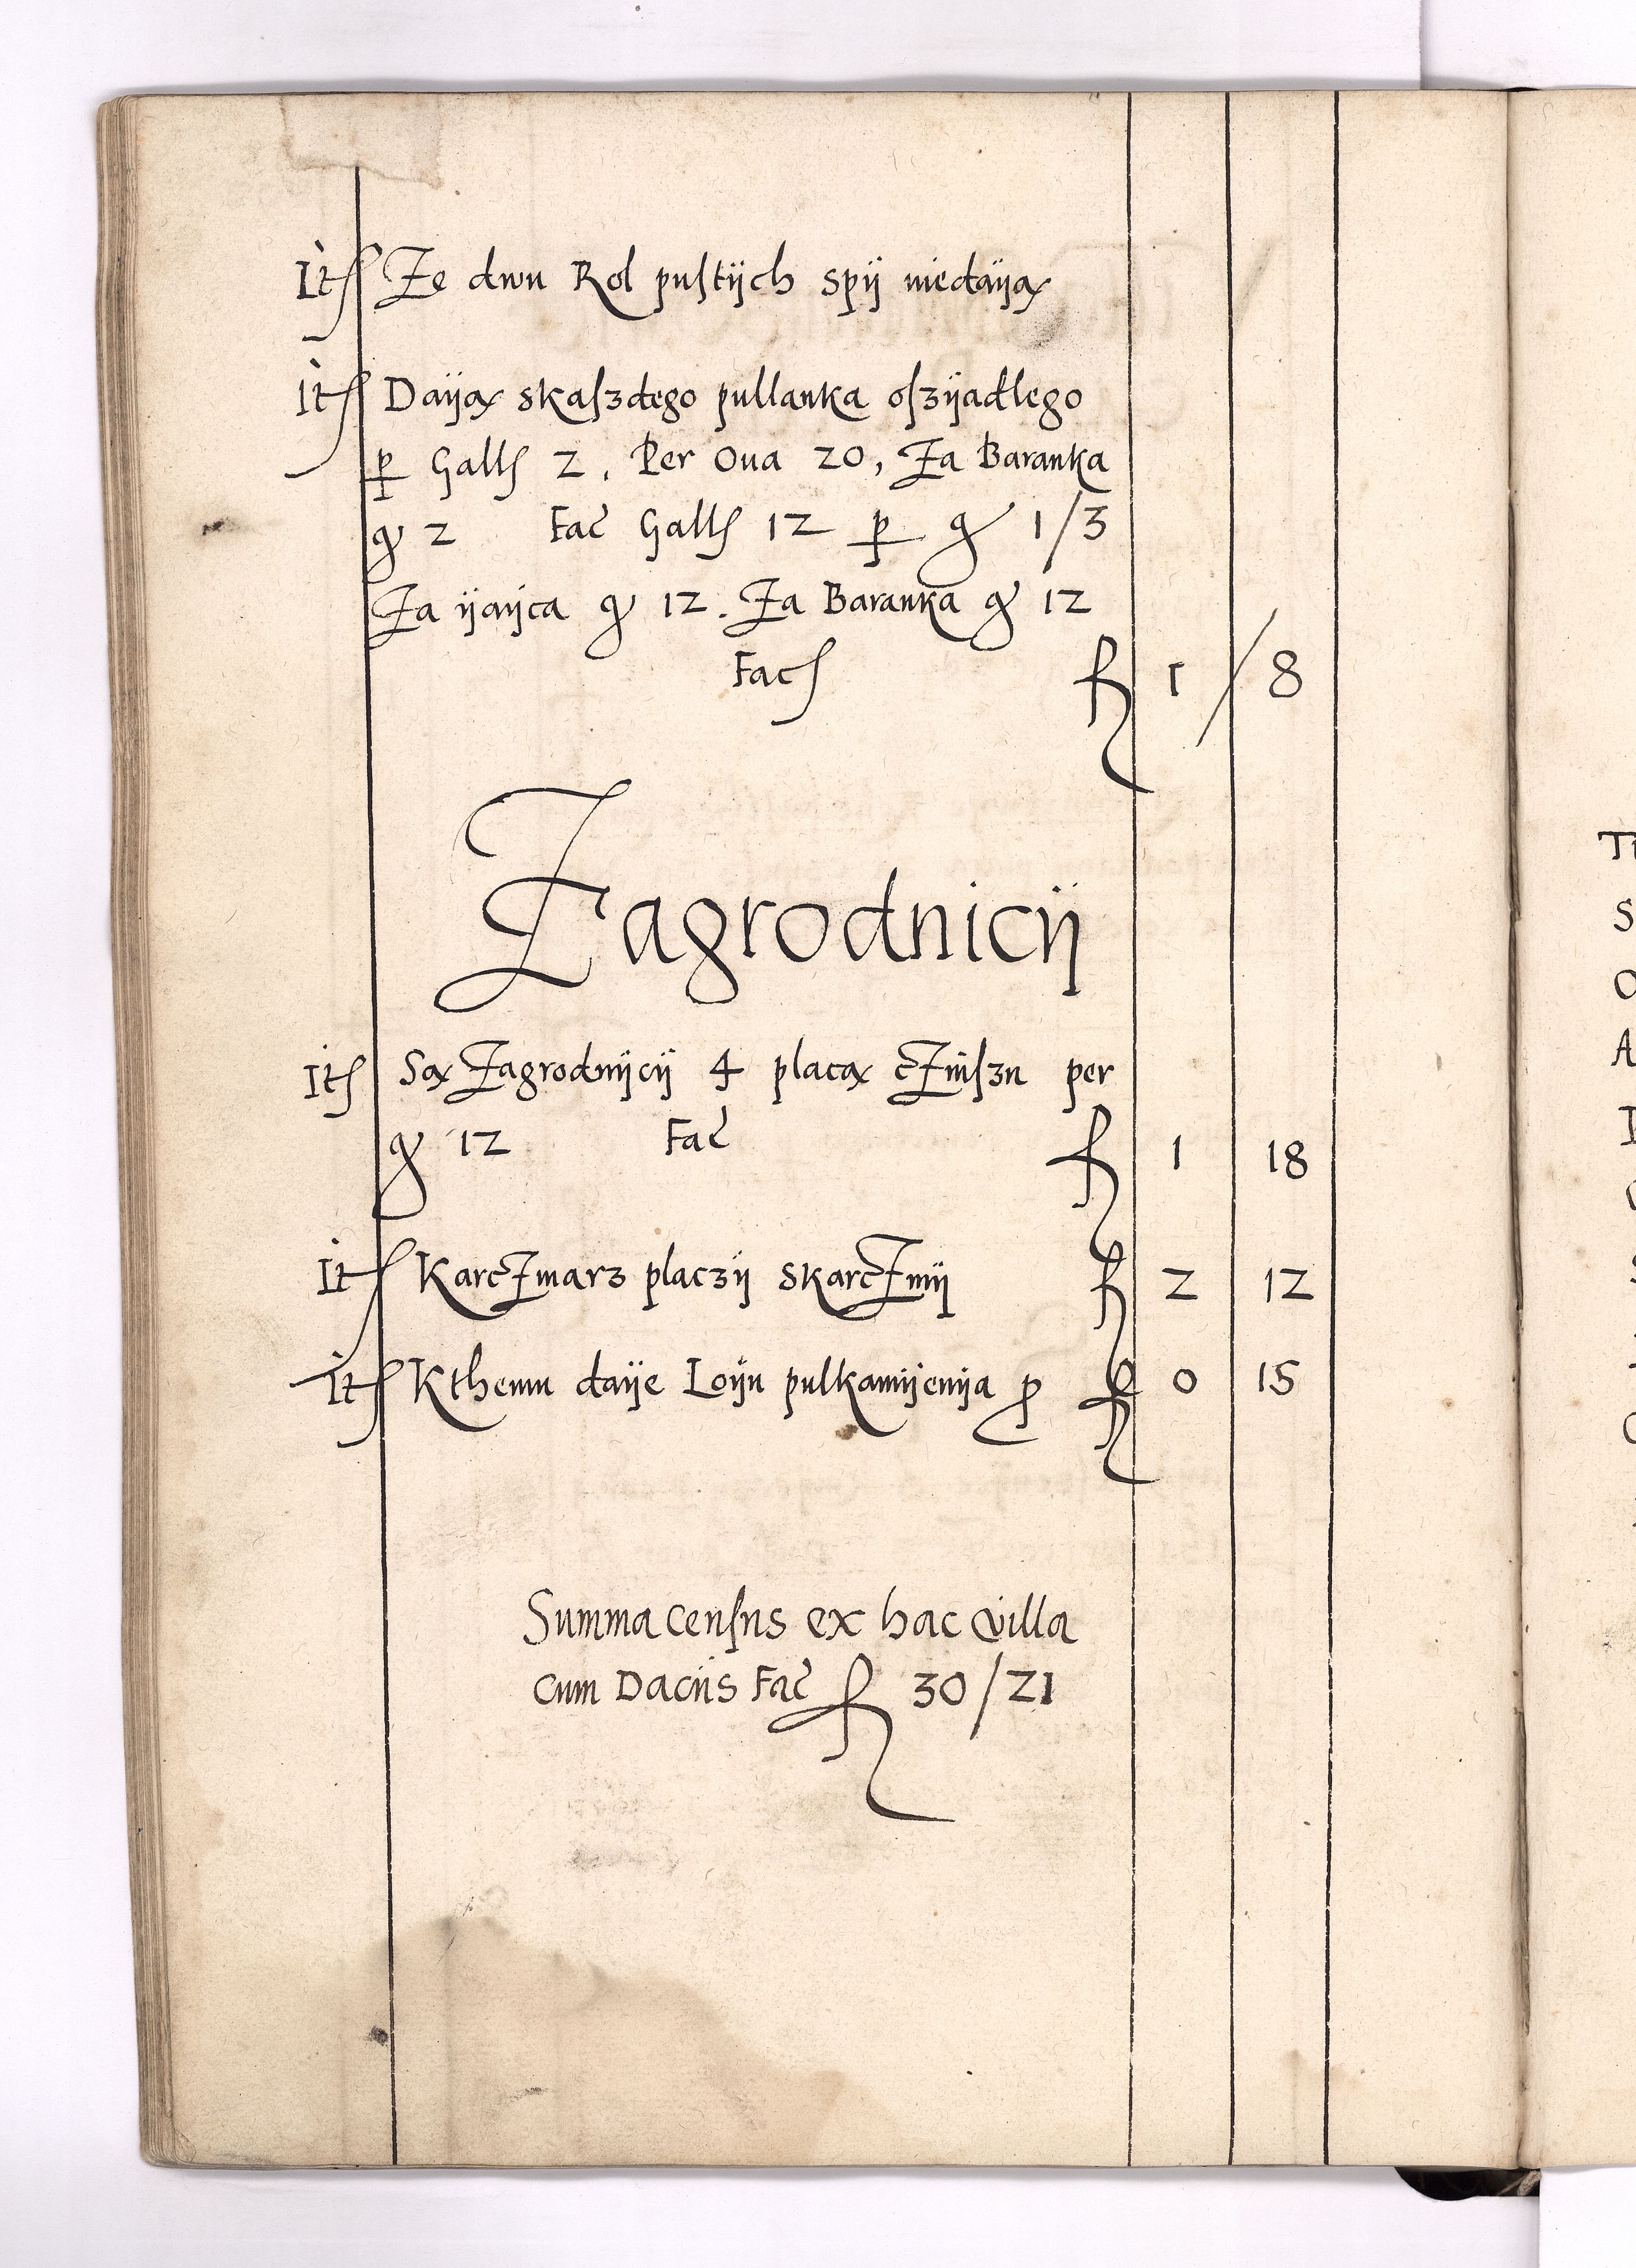 Itſ Ze dwu Rol puſtÿch spÿ niedaÿą
Itſ Daÿą skaſzdego pullanka oſzÿadlego
ꝑ Gallſ 2. Per Oua 20, Za Baranka
gͬ 2 Fac̃ Gallſ 12 ꝑ gͬ 1/3
Za ÿaÿca gͬ 12. Za Baranka gͬ 12
Facſ fl 1 / 8
Zagrodnicÿ
Itſ Są Zagrodnÿcÿ 4 placą cZinſzu per
gͬ 12 Fac̃ fl 1 18
Itſ KarcZmarz placzÿ skarcZmÿ fl 2 12
Itſ Kthemu daÿe Loÿu pulkamÿenÿa ꝓ fl 0 15
Summa Cenſus ex hac villa
Cum Dacÿs Fac̃ fl 30/21